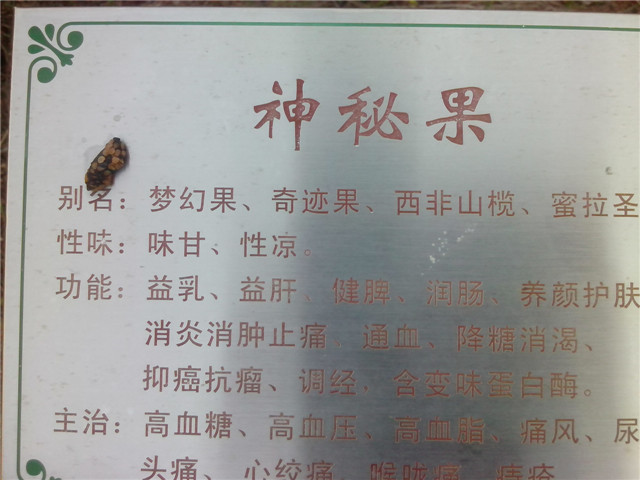 神秘果
别名：梦幻果、奇迹果、西非山榄、蜜拉圣
性味：味甘、性凉。
功能：益乳、益肝、健脾、润肠、养颜护肤
消炎消肿止痛、通血、降糖消渴、
抑癌抗瘤、调经，含变味蛋白酶。
主治：高血糖、高血压、高血脂、痛风、尿
头痛、心绞痛、喉咙痛、痔疮